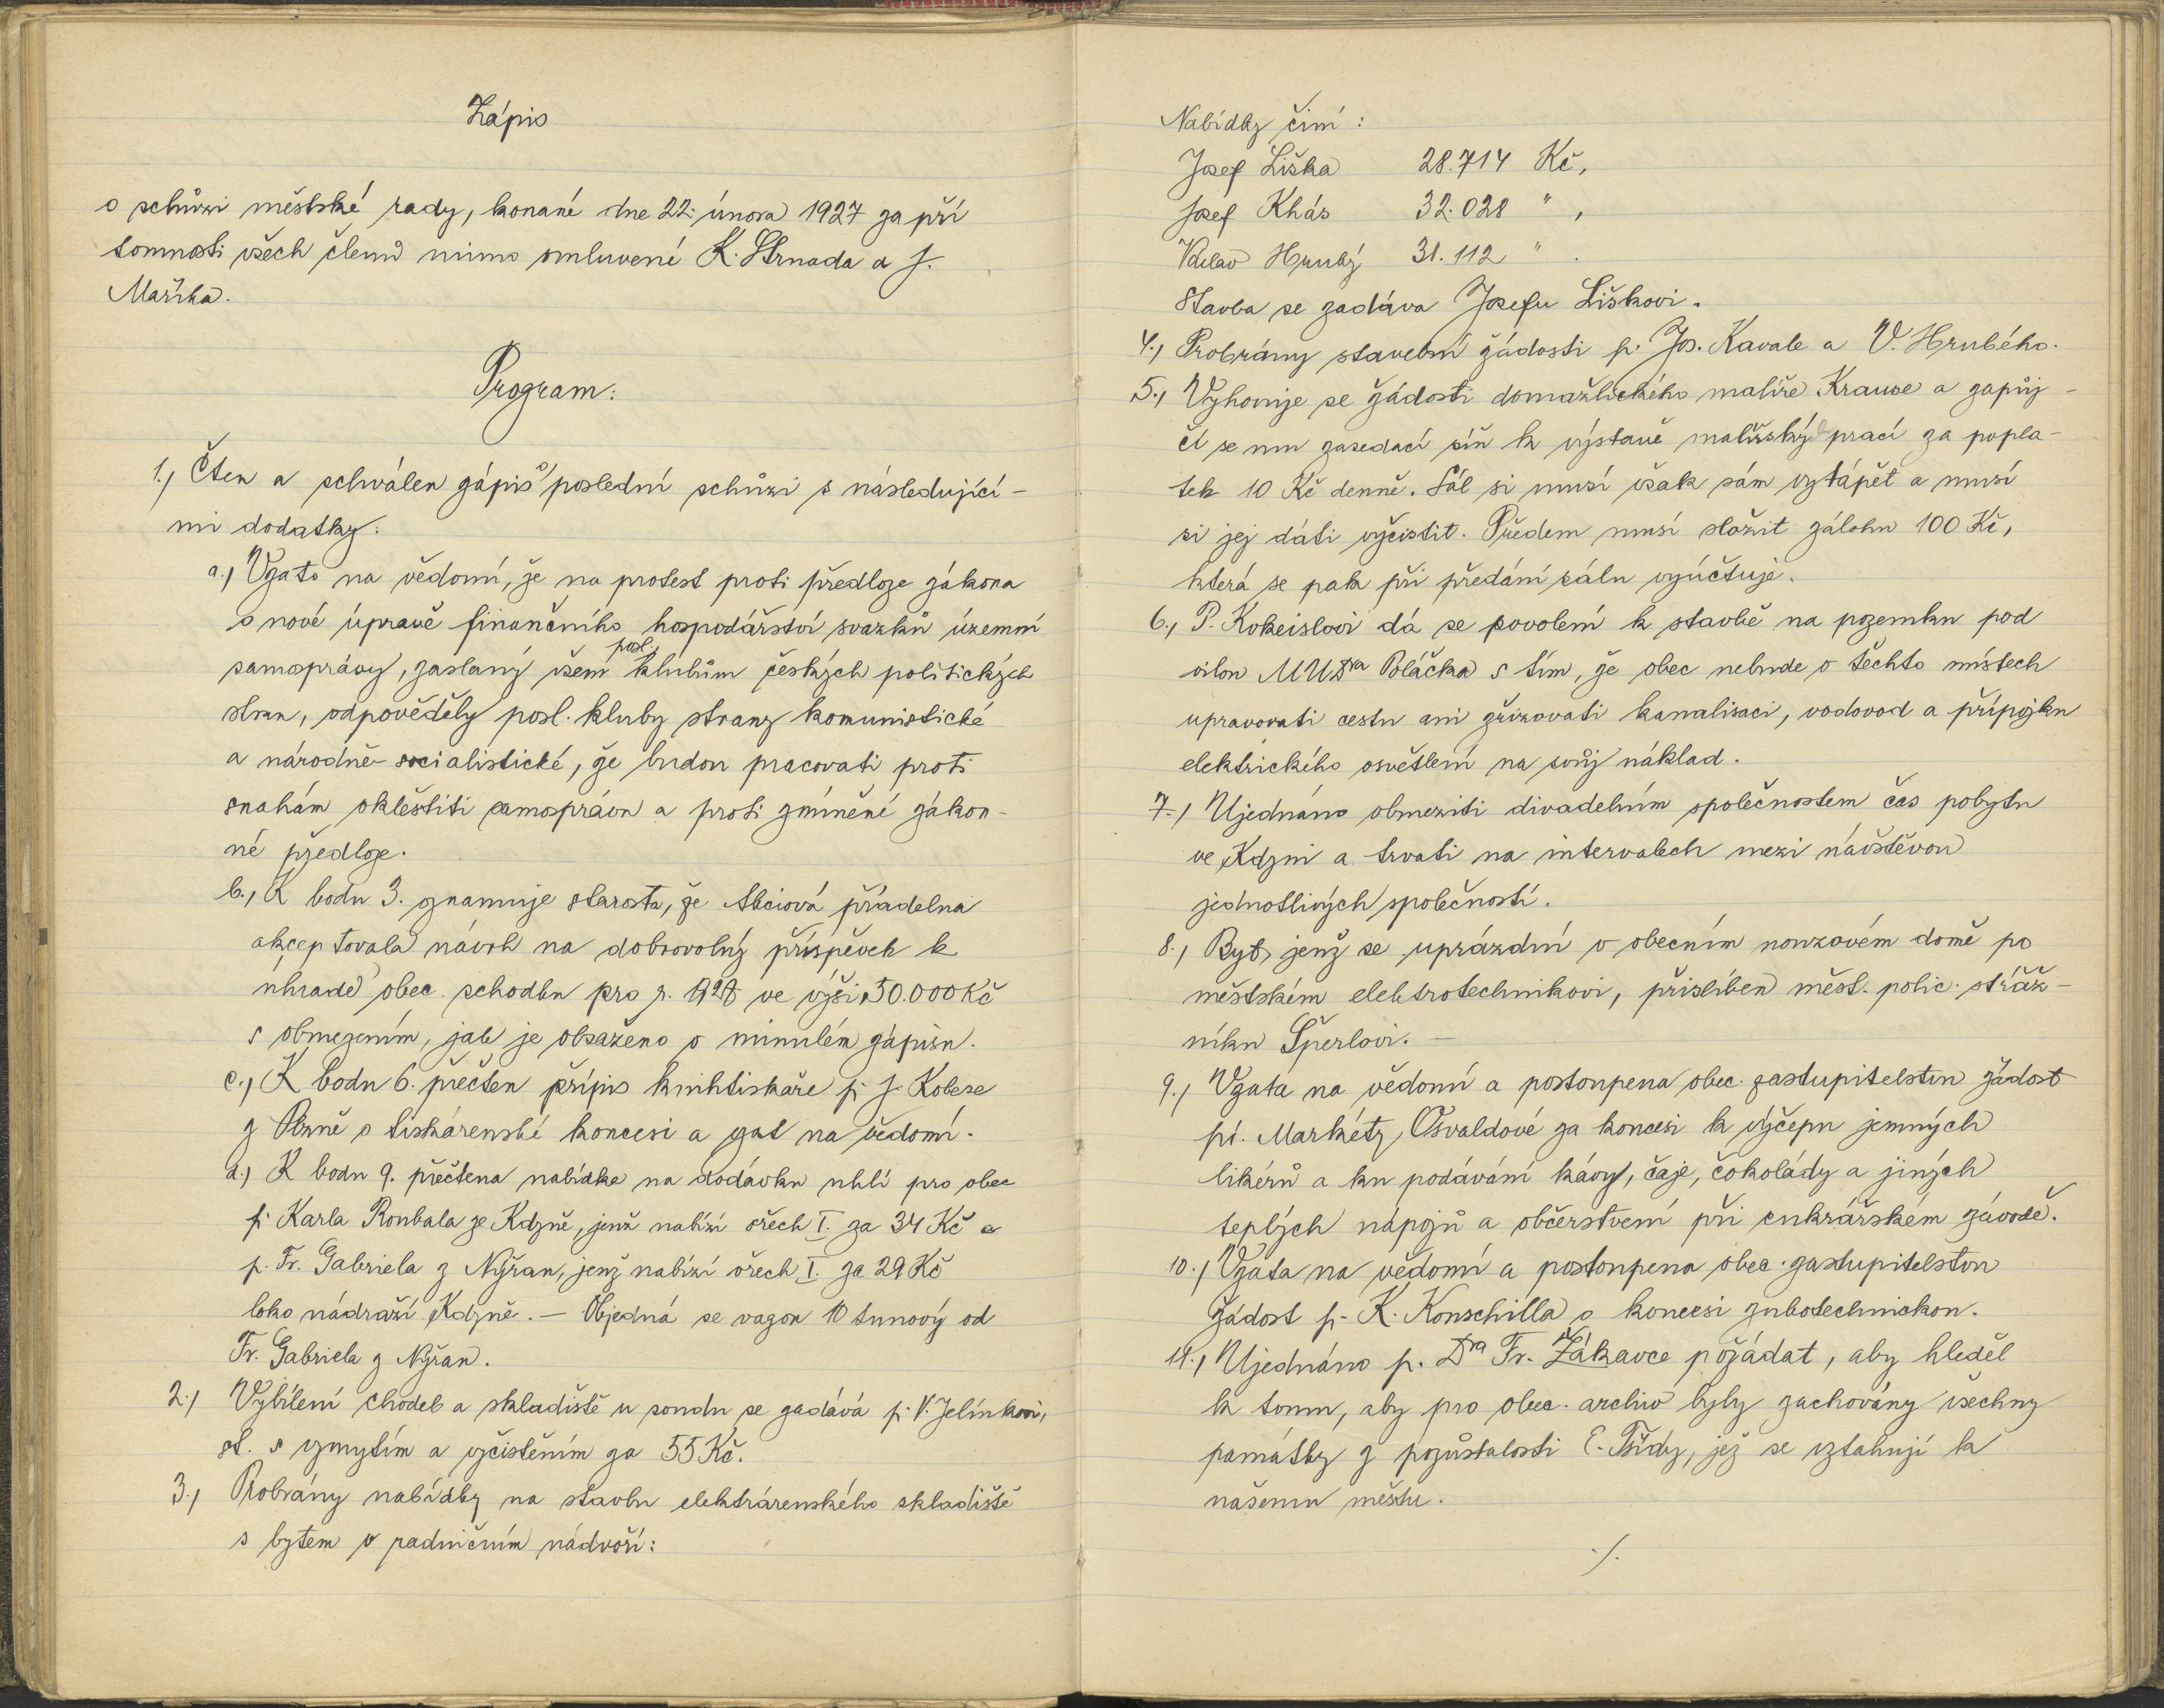 Zápis
o schůzi městské rady, konané dne 22. února 1927 za pří
tomnosti všech členů mimo omluvené K. Strnada a J.
Maříka.
Program:
1., Čten a schválen zápis o poslední schůzi s následující-
mi dodatky:
a., Vzato na vědomí, že na protest proti předloze zákona
o nové úpravě finančního hospodářství svazků územní
samosprávy, zaslaný všem posl. klubům českých politických
stran, odpověděly posl. kluby strany komunistické
a národně-socialistické, že budou pracovati proti
snahám oklestiti samosprávu a proti zmíněné zákon-
né předloze.
b., K bodu 3. oznamuje starosta, že Akciová přádelna
akceptovala návrh na dobrovolný příspěvek k
úhradě obec. schodku pro r. 1927 ve výši 50.000 Kč
s obmezením, jak je obsaženo v minulém zápisu.
c., K bodu 6. přečten přípis knihtiskaře p. J. Kobese
z Plzně o tiskárenské koncesi a vzat na vědomí.
d., K bodu 9. přečtena nabídka na dodávku uhlí pro obec
p. Karla Roubala ze Kdyně, jenž nabízí ořech I. za 34 Kč a
p. Fr. Gabriela z Nýřan, jenž nabízí ořech I. za 29 Kč
loko nádraží Kdyně. — Objedná se vagon 10 tunový od
Fr. Gabriela z Nýřan.
2., Vybílení chodeb a skladiště u soudu se zadává p. V. Jelínkovi,
st. s vymytím a vyčistěním za 55 Kč.
3., Probrány nabídky na stavbu elektrárenského skladiště
s bytem v radničním nádvoří:
Nabídky činí:
Josef Liška 28.714 Kč,
Josef Khás 32.028 " ,
Václav Hrubý 31.112 " .
Stavba se zadáva Josefu Liškovi.
4., Probrány stavební žádosti p. Jos. Kavale a V. Hrubého.
5., Vyhovuje se žádosti domažlického malíře Krause a zapůj-
čí se mu zasedací síň k výstavě malířských prací za popla-
tek 10 Kč denně. Sál si musí však sám vytápět a musí
si jej dáti vyčistit. Předem musí složit zálohu 100 Kč,
která se pak při předání sálu vyúčtuje.
6., P. Kokeislovi dá se povolení k stavbě na pozemku pod
vilou MUDra Poláčka s tím, že obec nebude v těchto místech
upravovati cestu ani zřizovati kanalisaci, vodovod a přípojku
elektrického osvětlení na svůj náklad.
7., Ujednáno obmeziti divadelním společnostem čas pobytu
ve Kdyni a trvati na intervalech mezi návštěvou
jednotlivých společností.
8., Byt, jenž se uprázdní v obecním nouzovém domě po
městském elektrotechnikovi, přislíben měst. polic. stráž-
níku Šperlovi. —
9., Vzata na vědomí a postoupena obec. zastupitelstvu žádost
pí. Markéty Osvaldové za koncesi k výčepu jemných
likérů a ku podávání kávy, čaje, čokolády a jiných
teplých nápojů a občerstvení při cukrářském závodě.
10., Vzata na vědomí a postoupena obec. zastupitelstvu
žádost p. K. Konschilla o koncesi zubotechnickou.
11., Ujednáno p. Dra Fr. Žákavce požádat, aby hleděl
k tomu, aby pro obec. archiv byly zachovány všechny
památky z pozůstalosti E. Tšídy, jež se vztahují k
našemu městu.
./.